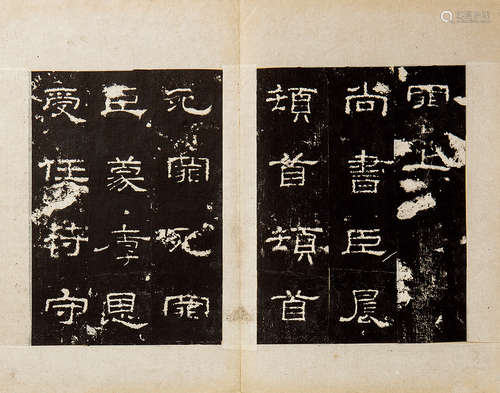 罪上
尚書臣晨
頓首頓首
死罪死罪
臣蒙厚恩
受任符守